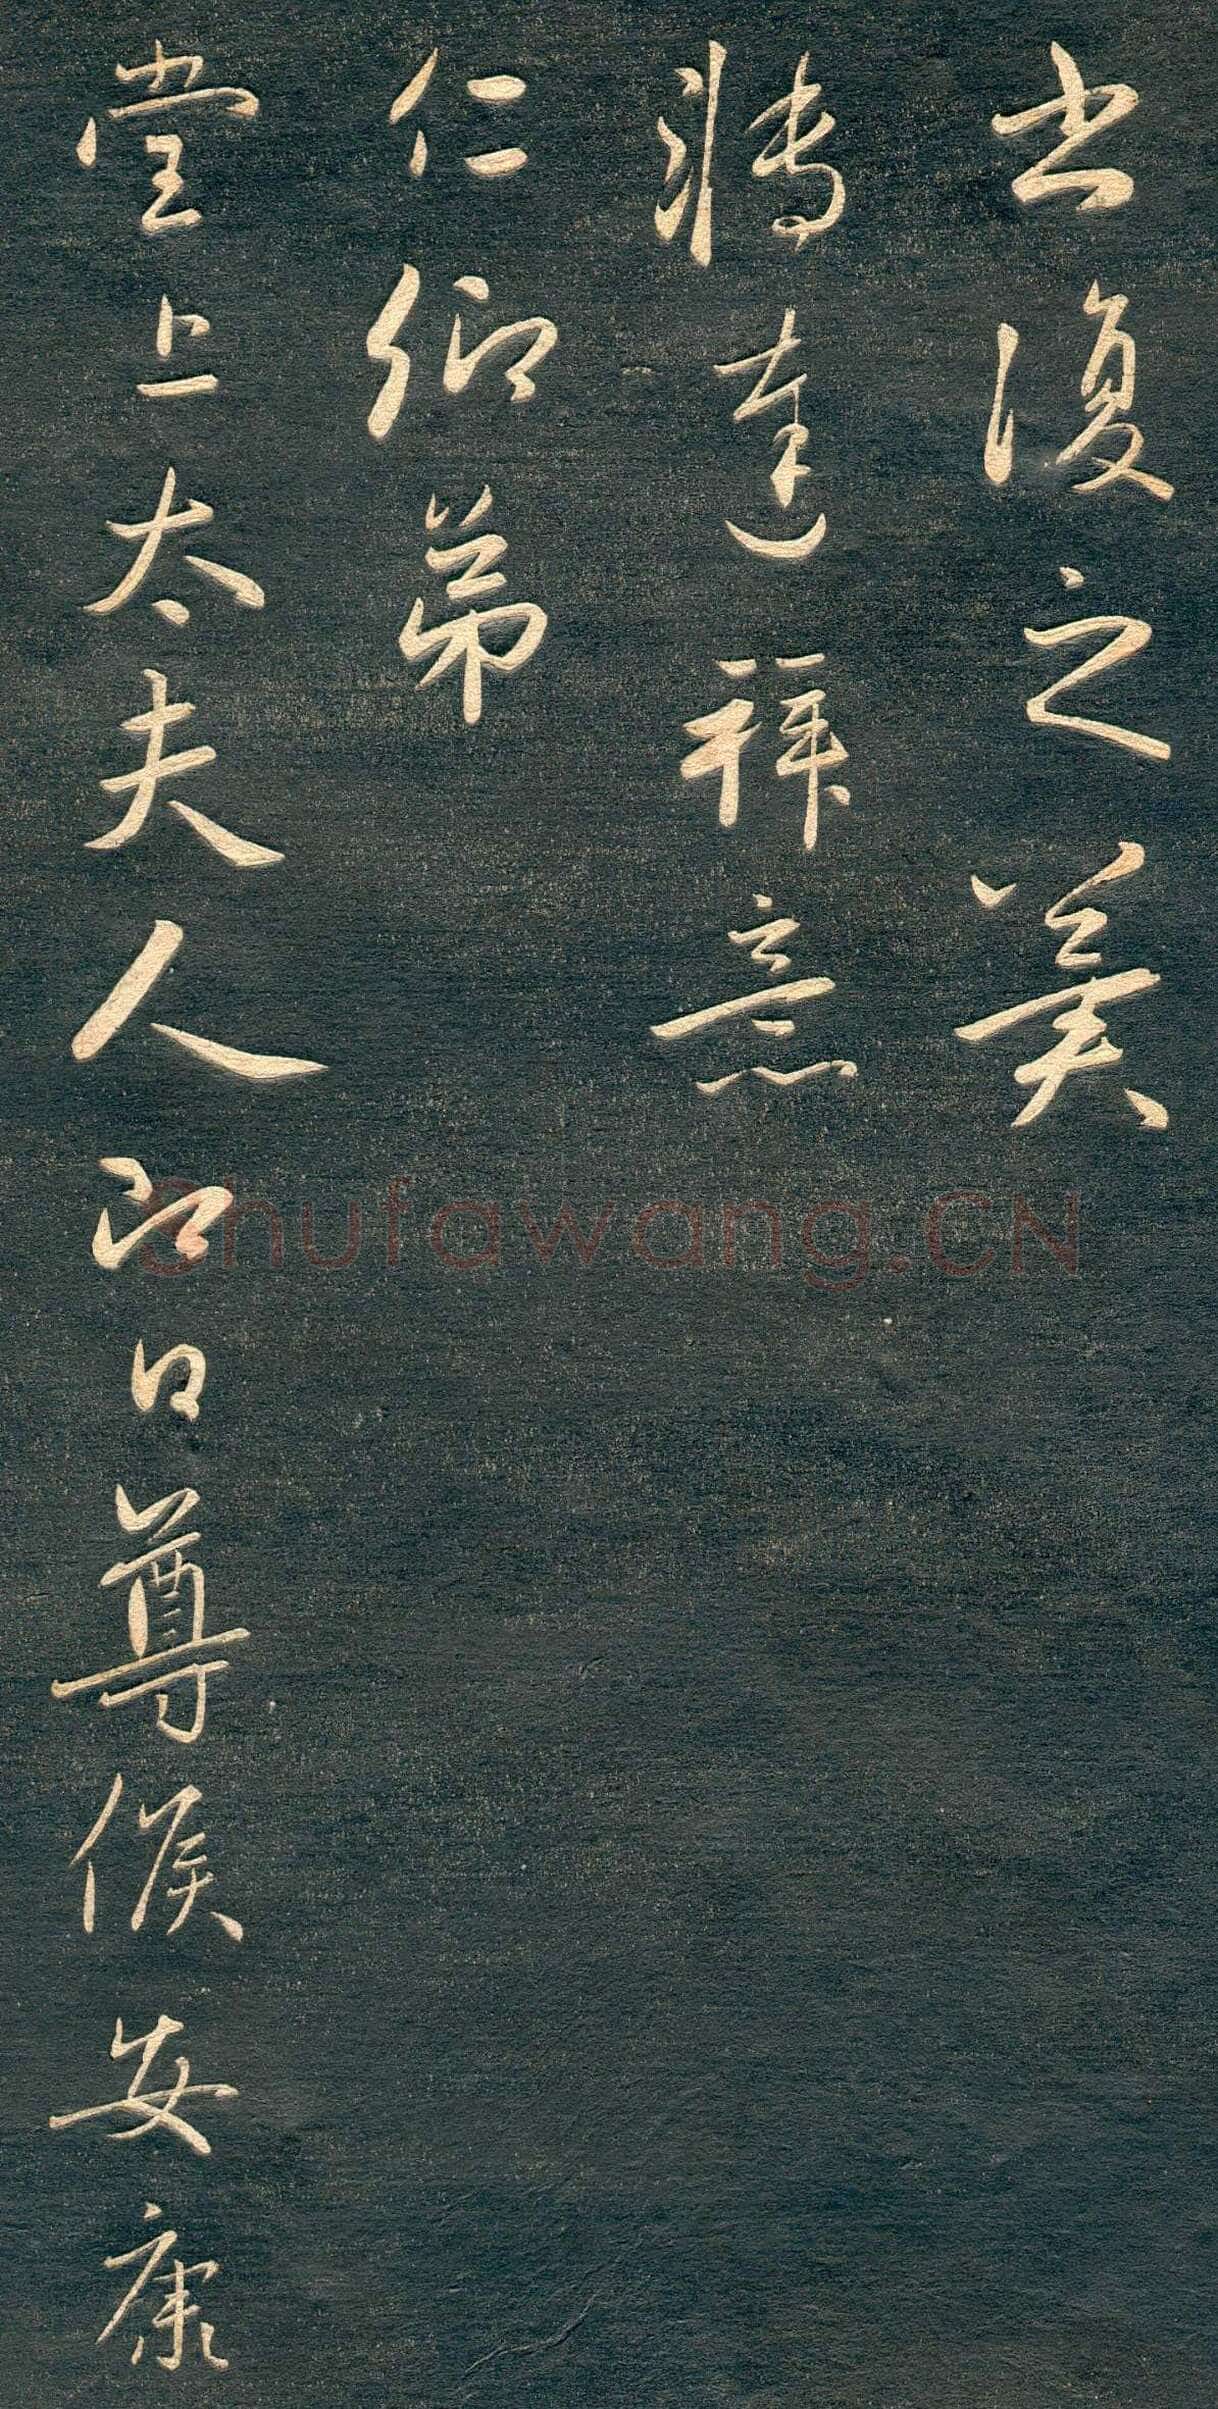 復之美
將達意
仁卿弟
堂上太夫人即日尊候安康
Shufawang.CN